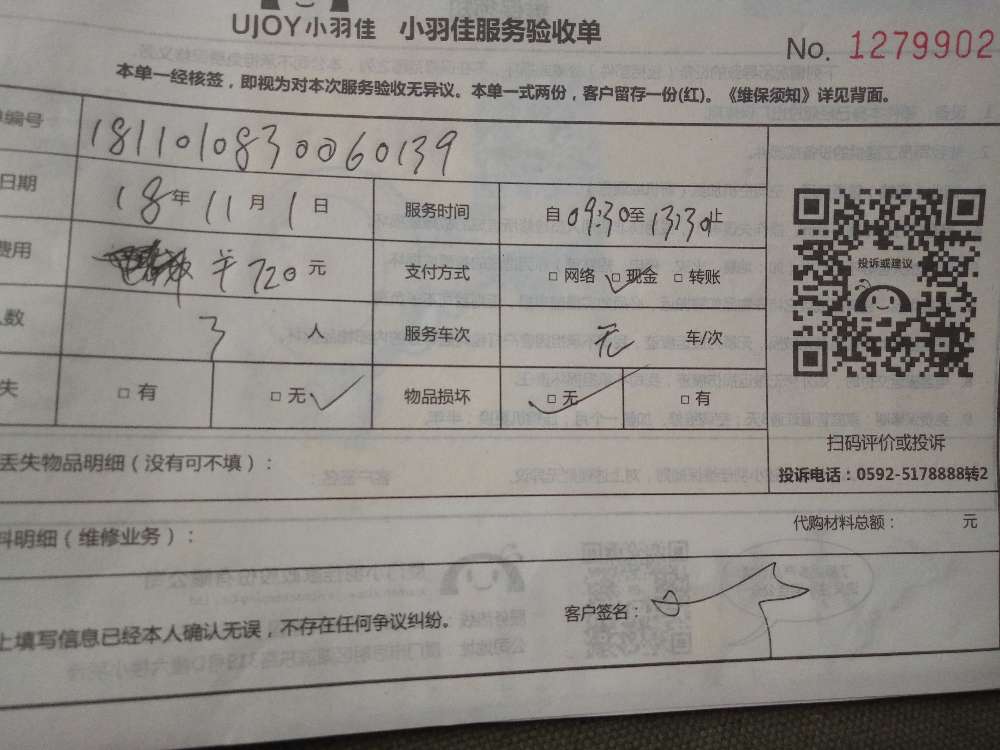 UJOY小羽佳 小羽佳服务验收单
No. 1279902
本单一经核签，即视为对本次服务验收无异议。本单一式两份，客户留存一份(红)。《维保须知》详见背面。
编号 1811010830060139
日期 18年 11月 1日 服务时间 自09:30至13:30止
费用 ¥720元 支付方式 □网络 □现金 □转账
人数 3人 服务车次 无 车/次
失 □有 □无 物品损坏 □无 □有
投诉或建议
扫码评价或投诉
投诉电话：0592-5178888转2
丢失物品明细（没有可不填）：
料明细（维修业务）： 代购材料总额： 元
上填写信息已经本人确认无误，不存在任何争议纠纷。 客户签名：